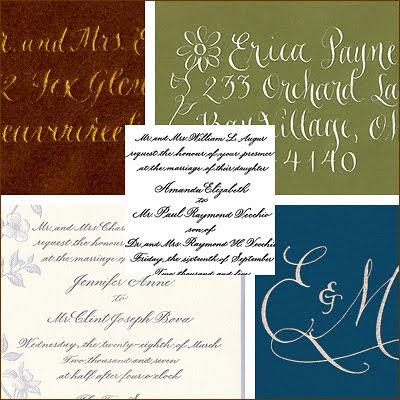 r. and Mrs. E
2 Fox Glen
Erica Payne
233 Orchard La
Bay Village, O
44140
Mr. and Mrs. William L. Augur
request the honour of your presence
at the marriage of their daughter
Amanda Elizabeth
to
Mr. Paul Raymond Vecchio
son of
Dr. and Mrs. Raymond H. Vecchio
Friday, the sixteenth of September
Two thousand and five
Mr. and Mrs. Chas
request the honour
at the marriage o
Jennifer Anne
to
Mr. Clint Joseph Bova
Wednesday, the twenty-eighth of March
Two thousand and seven
at half after four o'clock
E & M